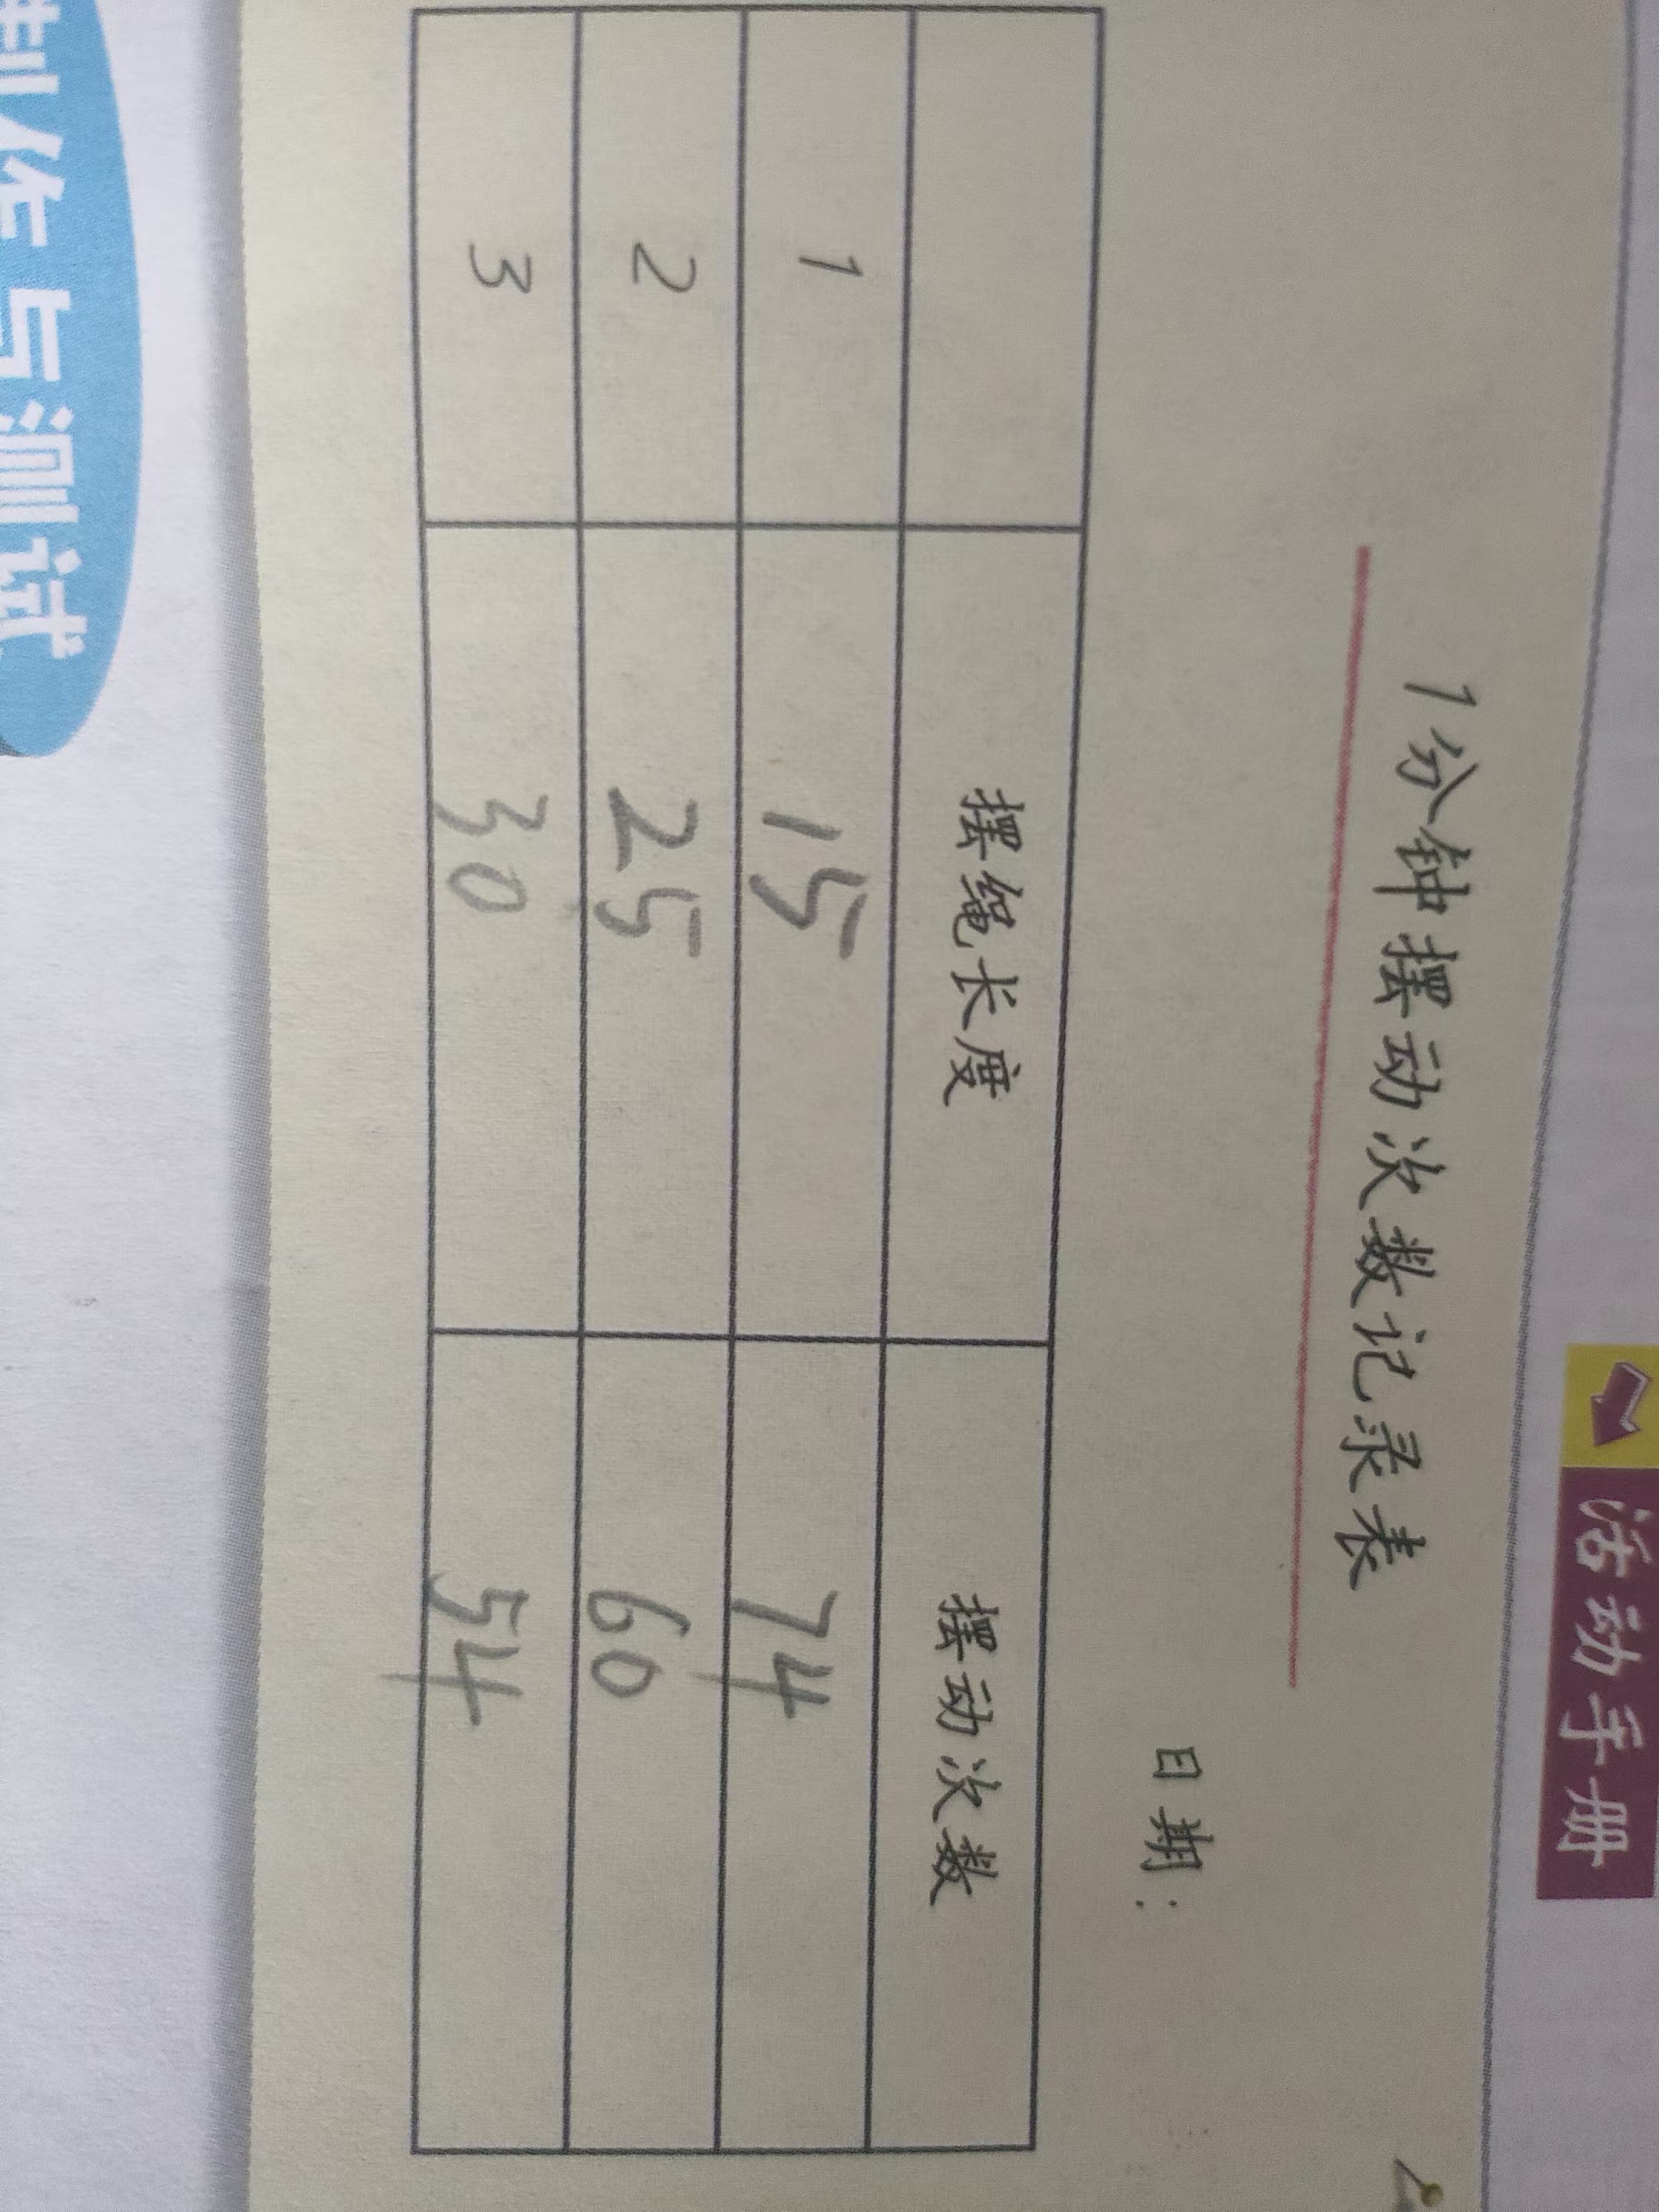 活动手册
1分钟摆动次数记录表
日期：
摆绳长度 摆动次数
1 15 74
2 25 60
3 30 54
制作与测试